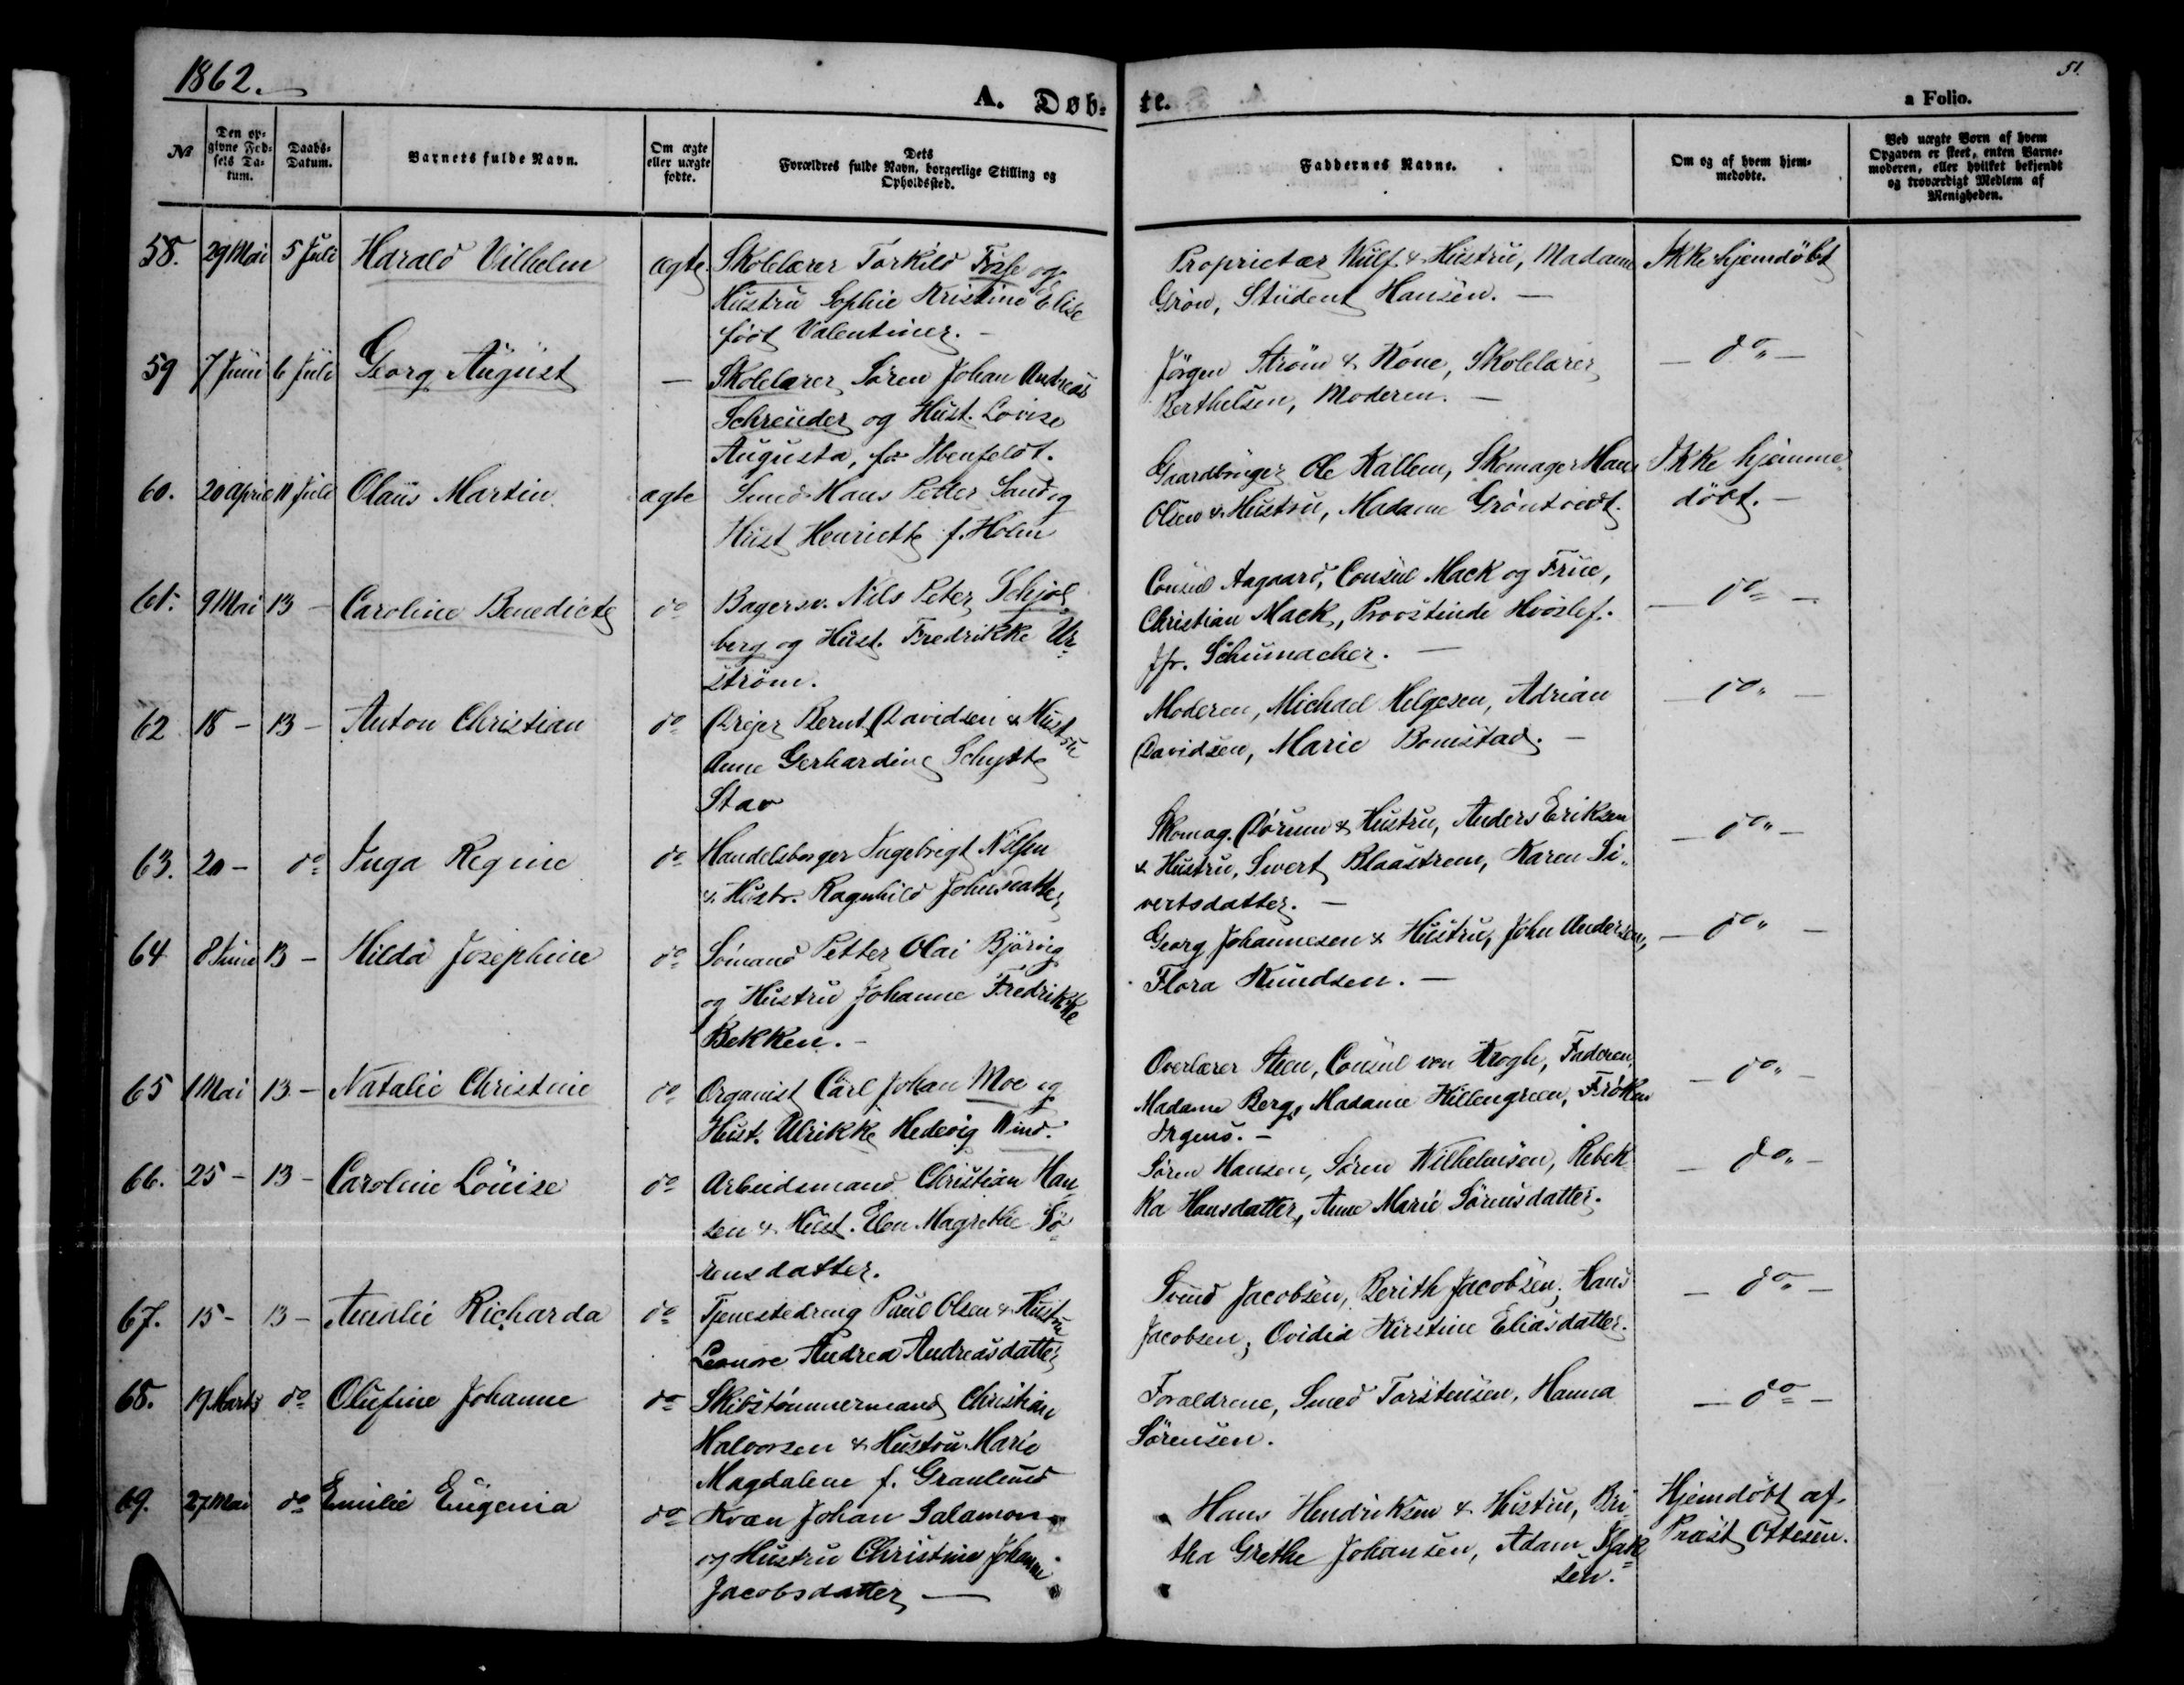 1862.
A. Døb-
te.
a Folio.
51.
No
Den op-
givne Fød-
sels Da-
tum.
Daabs-
Datum.
Barnets fulde Navn.
Om ægte
eller uægte
fødte.
Dets
Forældres fulde Navn, borgerlige Stilling og
Opholdssted.
Faddernes Navne.
Om og af hvem hjem-
medøbte.
Ved uægte Børn af hvem
Opgaven er skeet, enten Barne-
moderen, eller hvilket bekjendt
og troværdigt Medlem af
Menigheden.
58. 29 Mai 5 Juli Harald Vilhelm ægte Skolelærer Torkild Fosse og
Hustru Sophie Kristine Elise
født Valentiner. -
Proprietær Wulf & Hustru, Madame
Grøn, Student Hansen. -
Ikke hjemdøbt
59 7 Juni 6 Juli Georg August - Skolelærer Søren Johan Andreas
Schreuder og Hust. Lovise
Augusta, fø Ibenfeldt.
Jørgen Strøm & Kone, Skolelærer
Berthelsen, Moderen. -
- do -
60. 20 April 11 Juli Olaus Martin ægte Smed Hans Petter Sand og
Hust Henriette f. Holm
Gaardbruger Ole Kallem, Skomager Hans
Olsen & Hustru, Madame Grøntvedt.
Ikke hjemme
døbt. -
61. 9 Mai 13 - Caroline Benedicte do Bagersv. Nils Peter Schjøl
berg og Hust. Fredrikke Ur
strøm.
Consul Aagaard, Consul Mack og Frue,
Christian Mack, Provstinde Hvoslef.
Jfr. Schumacher. -
- do -
62 18 - 13 - Anton Christian do Drejer Bernt Davidsen & Hustru
Anne Gerhardine Schytte
Stav
Moderen, Michael Helgesen, Adrian
Davidsen, Marie Bomstad. -
- do -
63. 20 - do Inga Regine do Handelsborger Ingebrigt Nilsen
& Hustr. Ragnhild Johnsdatter
Skomag. Dørum & Hustru, Anders Eriksen
& Hustru, Sivert Blaastrem, Karen Si-
vertsdatter. -
- do -
64 8 Juni 13 - Hilda Josephine do Sømand Petter Olai Bjørvig
og Hustru Johanne Fredrikke
Bekken. -
Georg Johannesen & Hustru, John Andersen,
Flora Knudsen. -
- do -
65 1 Mai 13. - Natalie Christine do Organist Carl Johan Moe og
Hust. Ulrikke Hedevig Wind.
Overlærer Steen, Consul von Krogh, Faderen,
Madame Berg, Madame Killengreen, Frøken
Irgens. -
- do -
66. 25 - 13 - Caroline Louise do Arbeidsmand Christian Han
sen & Hust. Elen Magrethe Sø
rensdatter.
Søren Hansen, Søren Wilhelmsen, Rebek
ka Hansdatter, Anne Marie Sørensdatter.
- do -
67. 15 - 13 - Amalie Richarda do Tjenestedreng Paul Olsen & Hustru
Leonore Andrea Andreasdatter
Svend Jacobsen, Berith Jacobsen, Hans
Jacobsen, Ovidia Kirstine Eliasdatter.
- do -
68. 19 Marts do Olufine Johanne do Skibstømmermand Christian
Halvorsen & Hustru Marie
Magdalene f. Granlund
Forældrene, Smed Torstensen, Hanna
Sørensen.
- do -
69. 27 Mai do Emilie Eugenia do Kvæn Johan Salamon
og Hustru Christine Johanne
Jacobsdatter -
Hans Hendriksen & Hustru, Bri-
tha Grethe Johansen, Adam Isak
sen.
Hjemdøbt af
Præst Ottesen.